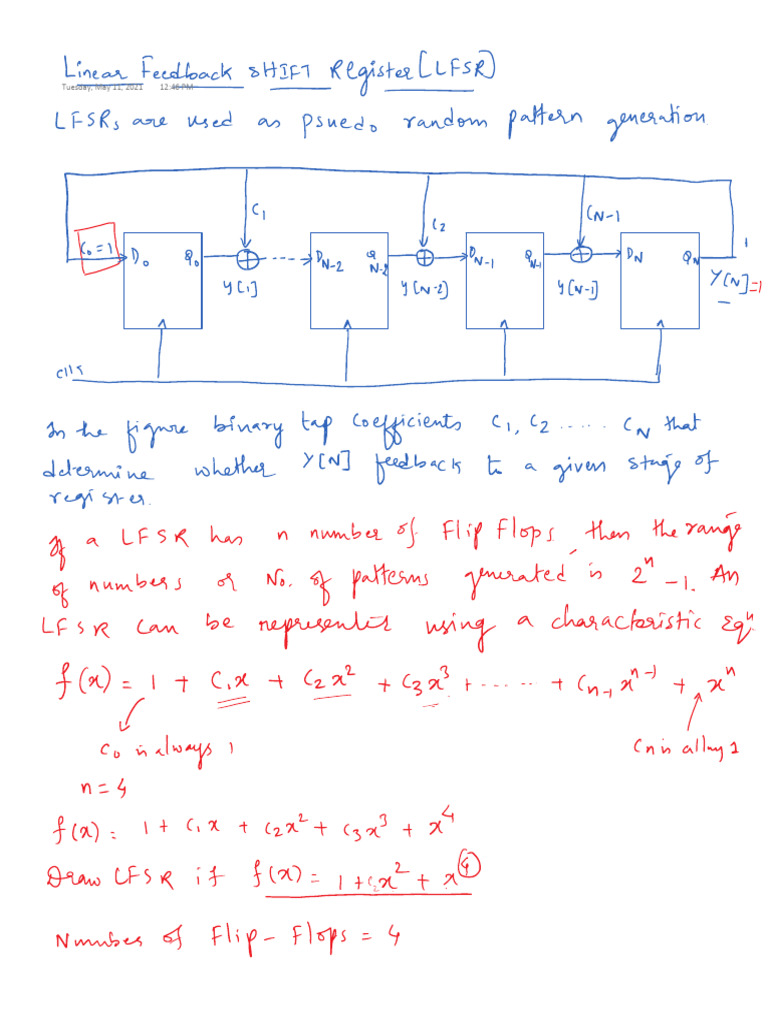 Linear Feedback SHIFT Register (LFSR)
Tuesday, May 11, 2021 12:46 PM
LFSRs are used as psuedo random pattern generation
C1
C2
CN-1
C0=1
D0 Q0
DN-2 QN-2
DN-1 QN-1
DN QN
1
Y[1]
Y[N-2]
Y[N-1]
Y[N]=1
clk
In the figure binary tap coefficients C1, C2 ...... CN that
determine whether Y[N] feedback to a given stage of
register.
If a LFSR has n number of Flip Flops, then the range
of numbers or No. of patterns generated is 2^n - 1. An
LFSR can be represented using a characteristic Eqn
f(x) = 1 + C1x + C2x^2 + C3x^3 + ...... + Cn-1 x^n-1 + x^n
C0 is always 1
Cn is allway 1
n = 4
f(x) = 1 + C1x + C2x^2 + C3x^3 + x^4
Draw LFSR if f(x) = 1 + C2x^2 + x^4
Number of Flip-Flops = 4